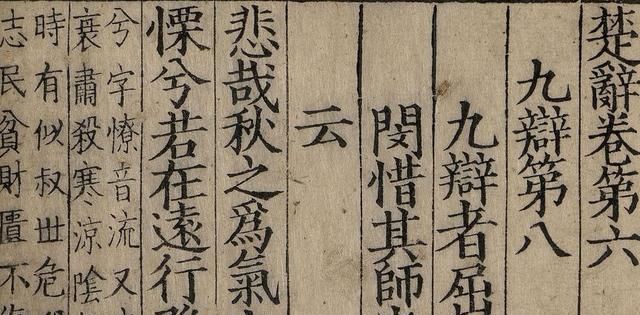 楚辭卷第六
九辯第八
九辯者屈
閔惜其師
云
悲哉秋之爲氣
慄兮若在遠行
兮字憭音流又
衰肅殺寒凉陰
時有似叔世危
志民貧財匱不